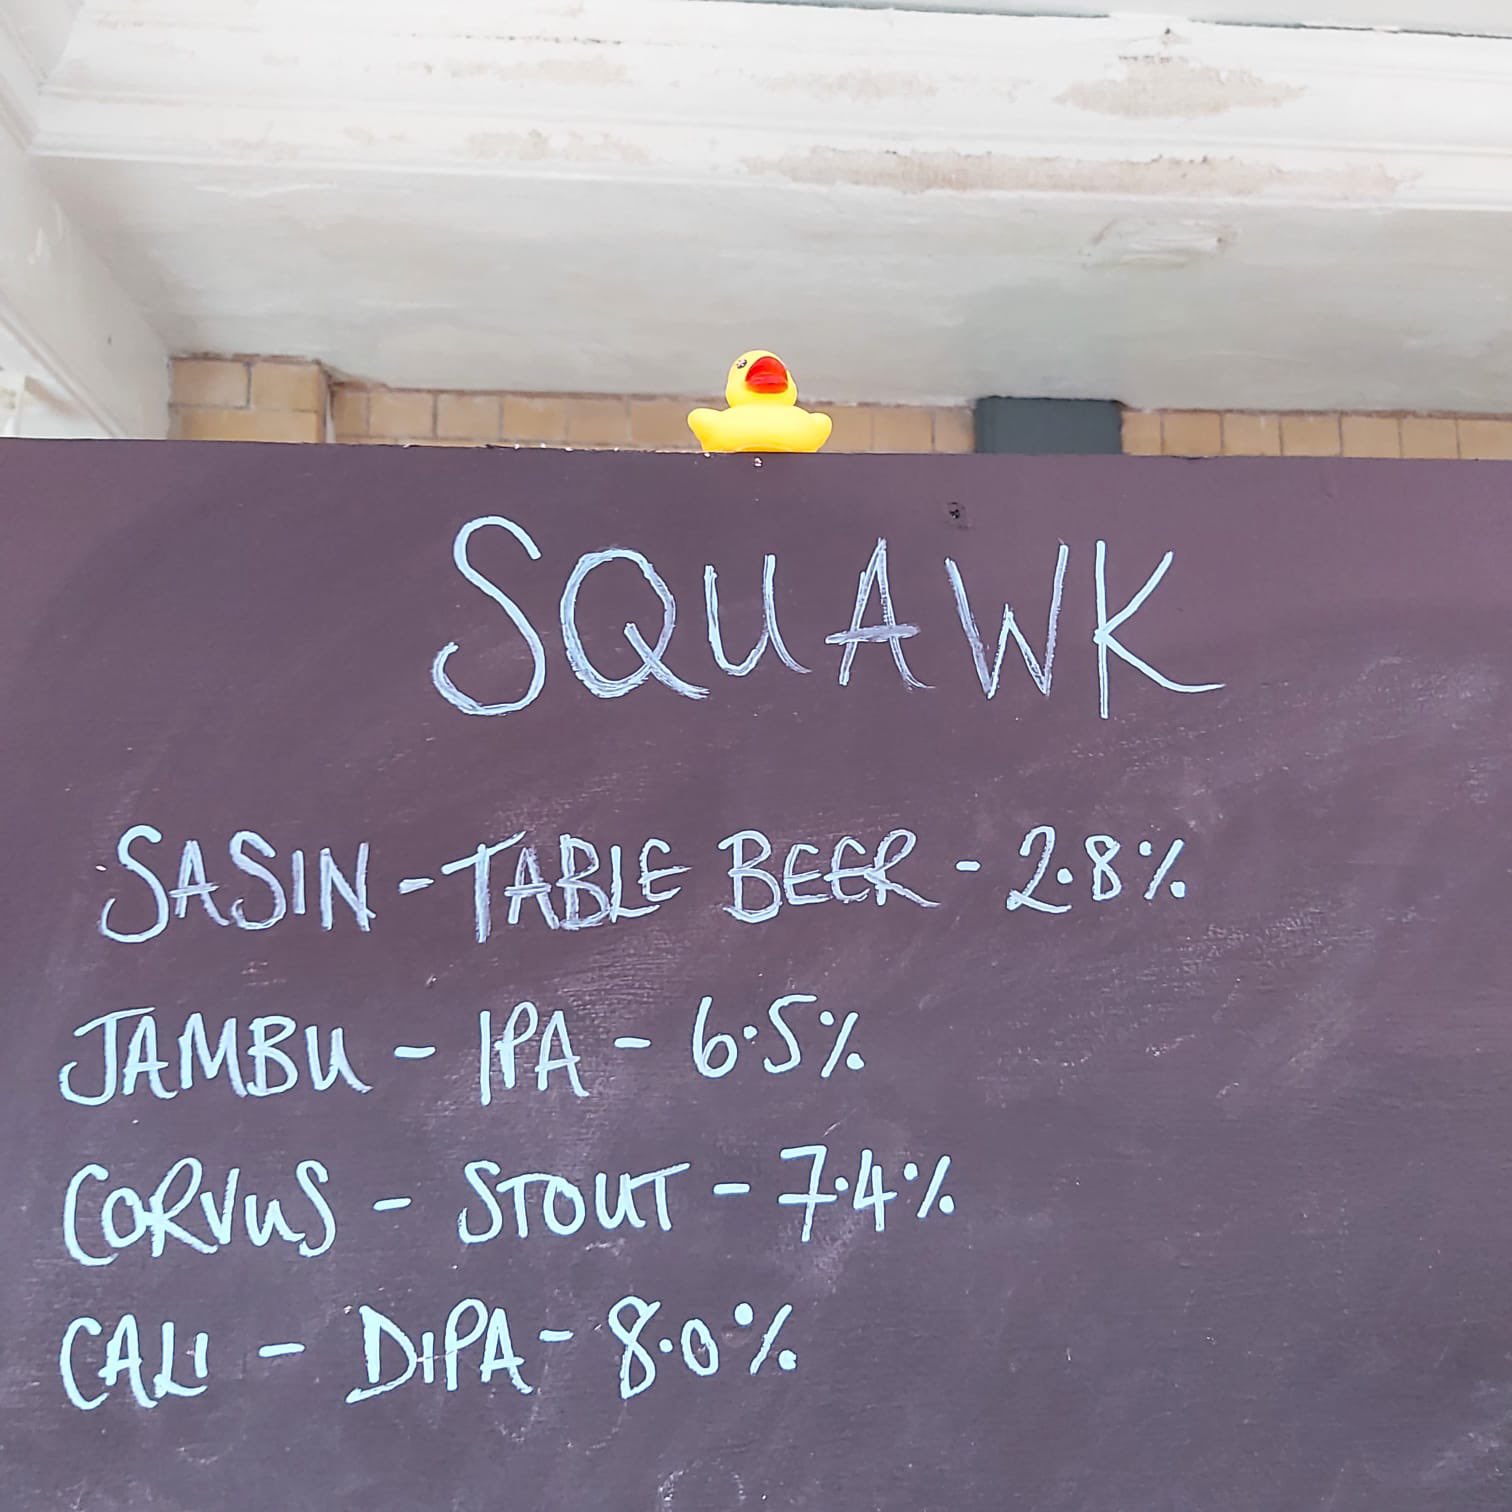 SQUAWK
SASIN - TABLE BEER - 2.8%
JAMBU - IPA - 6.5%
CORVUS - STOUT - 7.4%
CALI - DIPA - 8.0%